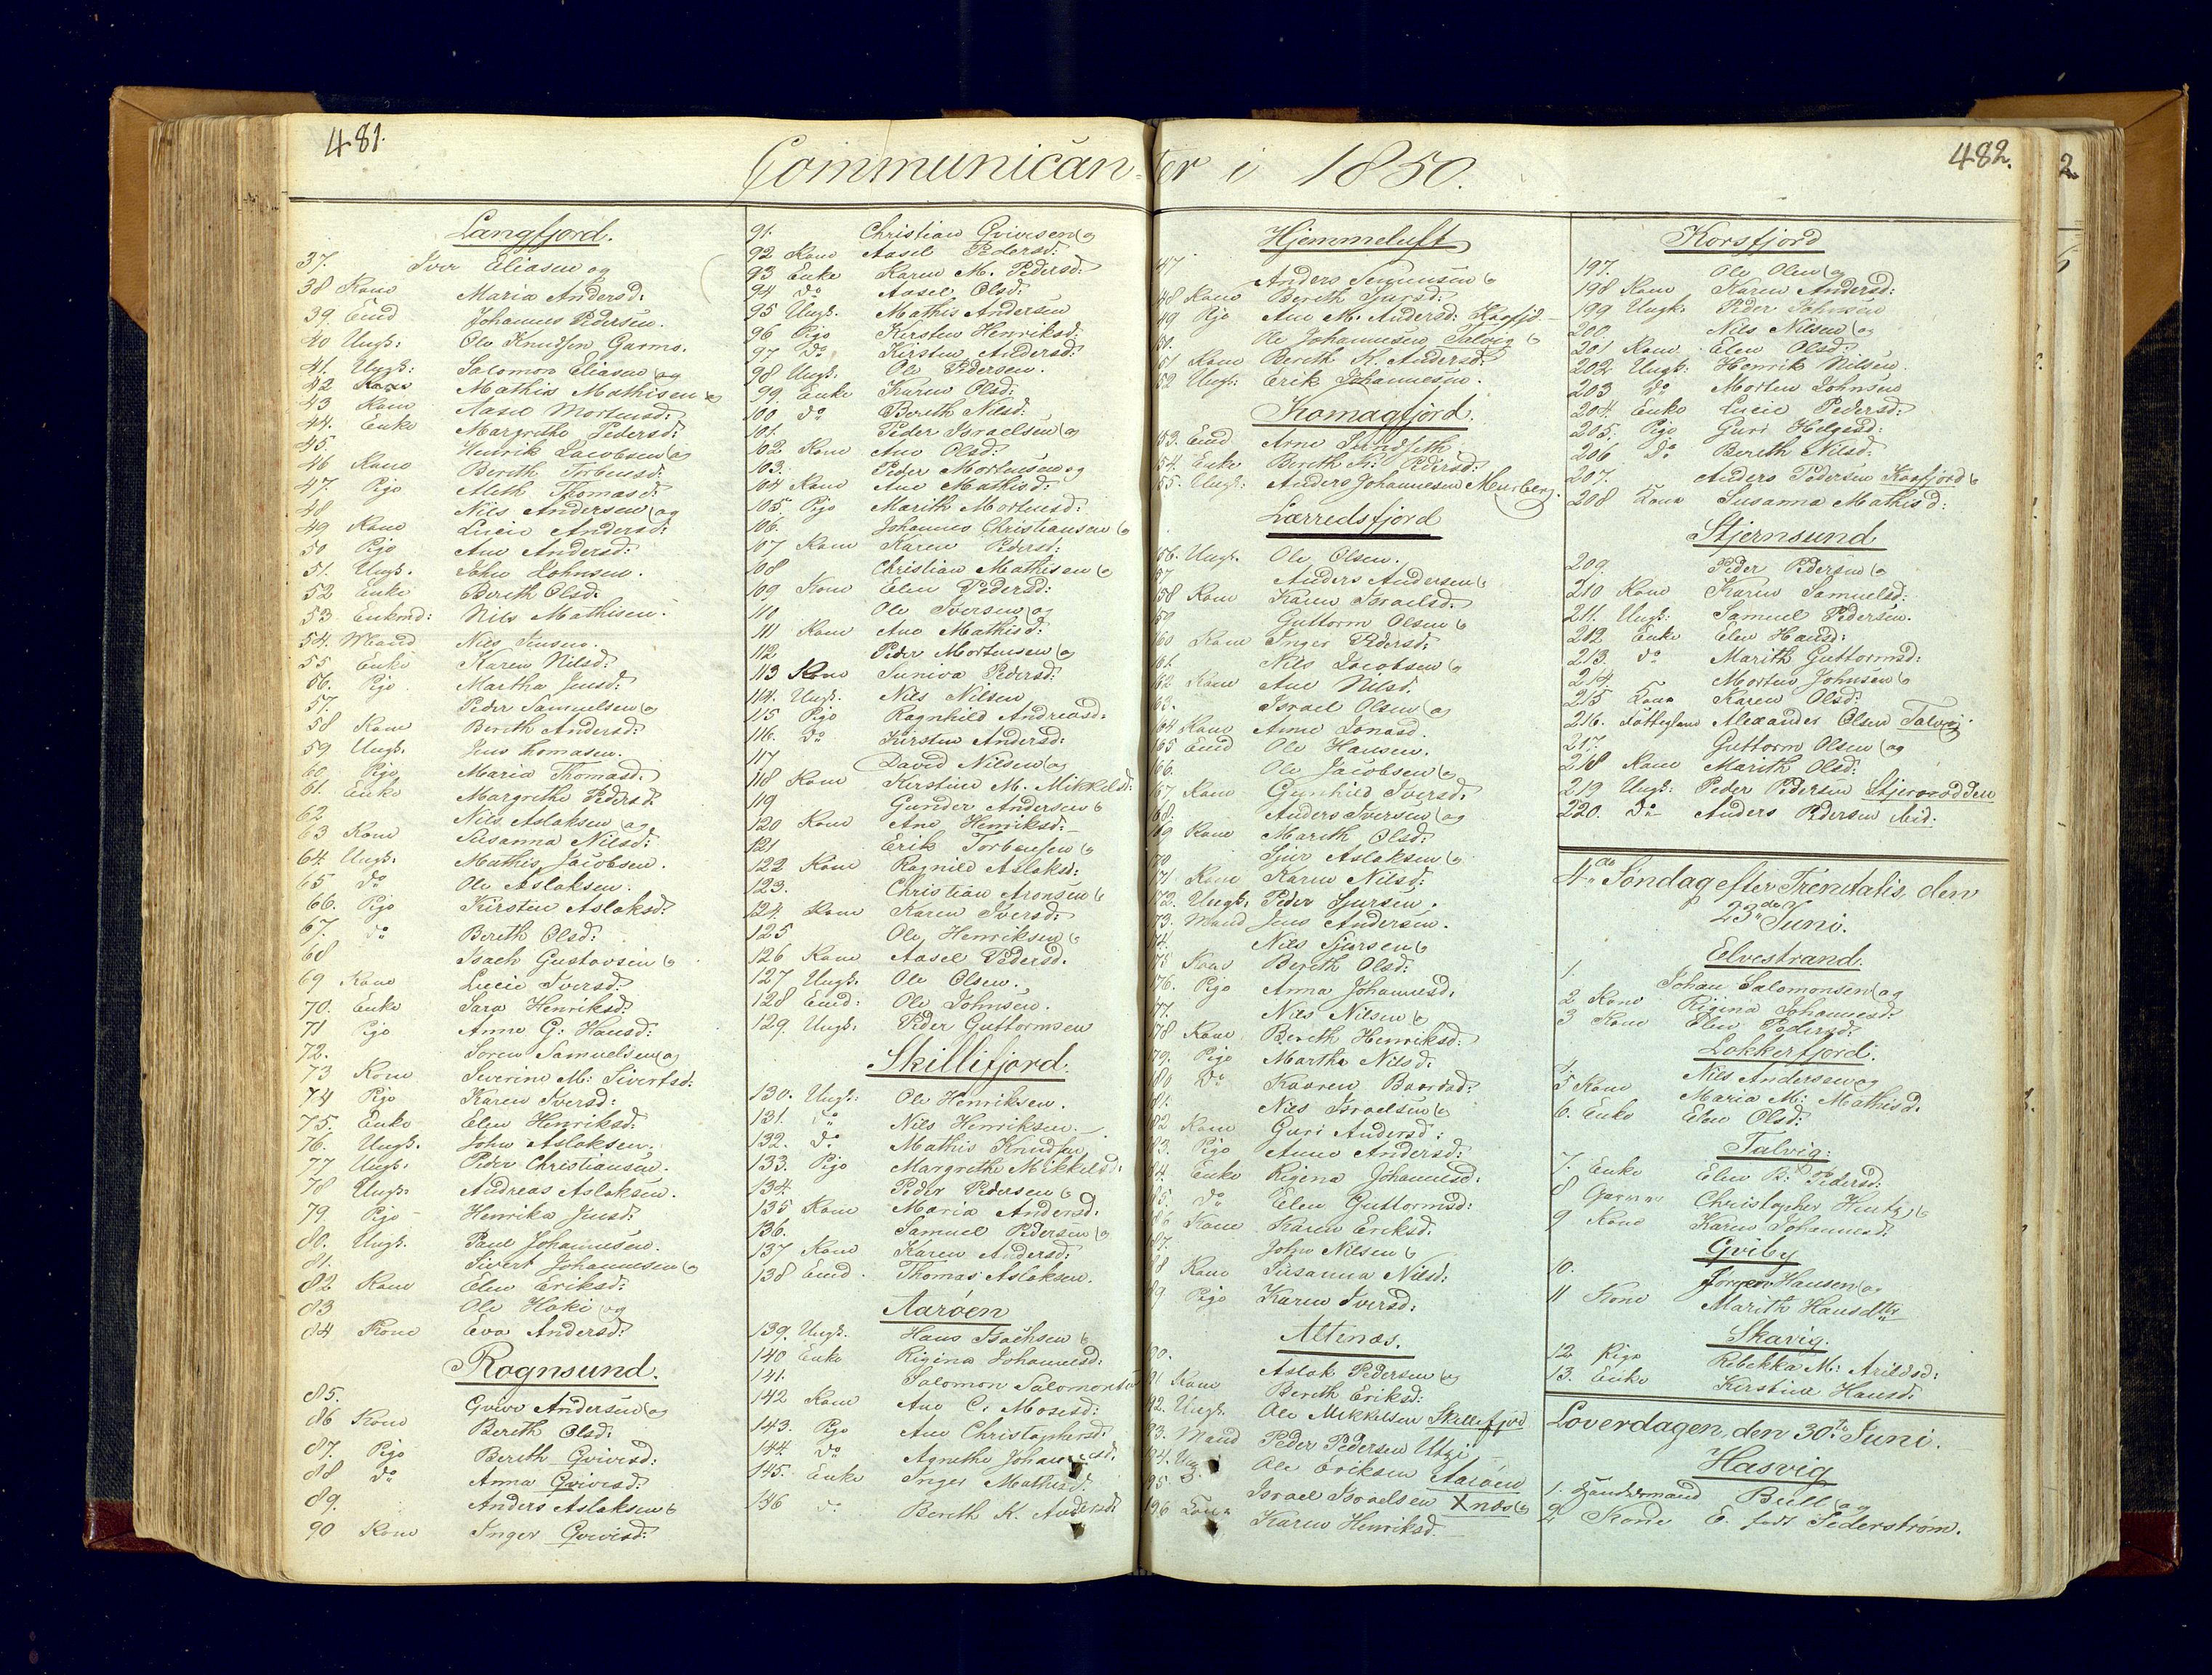 481.
Communican-
Langfjord.
37. Iver Eliasen og
38 Kone Maria Andersd:
39. Emd Johannes Pedersen.
40 Ungk: Ole Knudsen Garmo.
41. Ungk: Salomon Eliasen og
42 Kone Mathis Mathisen og
43 Kone Aasel Mortensd:
44. Enke Margrethe Pedersd:
45. Henrik Jacobsen og
46 Kone Bereth Torbensd:
47. Pige Aleth Thomasd:
48 Nils Andersen og
49 Kone Lucie Andersd:
50 Pige Ane Andersd:
51. Ungk. John Johnsen.
52 Enke Bereth Olsd:
53 Enkmd: Nils Mathisen.
54. Mand Nils Jensen.
55 Enke Karen Nilsd:
56. Pige. Martha Jensd:
57. Peder Samuelsen og
58 Kone Bereth Andersd:
59 Ungk. Jens Thomasen.
60. Pige Maria Thomasd:
61. Enke Margrethe Pedersd:
62 Nils Aslaksen og
63 Kone Susanna Nilsd:
64 Ungk. Mathis Jacobsen.
65 do Ole Aslaksen.
66. Pige Kirsten Aslaksd:
67. do Bereth Olsd:
68 Isach Gustavsen og
69 Kone Lucie Iversd:
70. Enke Sara Henriksd:
71 Pige Anne G: Hansd:
72. Søren Samuelsen og
73 Kone Severine M: Sivertsd:
74 Pige Karen Iversd:
75. Enke Elen Henriksd:
76. Ungk. John Aslaksen.
77 Ungk. Peder Christiansen.
78 Ungk. Andreas Aslaksen.
79 Pige Henrika Jensd:
80. Ungk. Paul Johannesen.
81. Sivert Johannesen og
82 Kone Elen Eriksd:
83 Ole Hoki og
84 Kone Eva Andersd:
Rognsund.
85. Qvive Andersen og
86 Kone Bereth Olsd:
87. Pige Bereth Qvivesd:
88 do Anna Qvivesd:
89. Anders Aslaksen og
90 Kone Inger Qvivesd:
91. Christian Qvivesen og
92 Kone Aasel Pedersd:
93 Enke Karen M. Pedersd:
94 do Aasel Olsd:
95 Ungk. Mathis Andersen
96 Pige Kirsten Henriksd:
97 do Kirsten Andersd:
98 Ungk. Ole Pedersen.
99 Enke Karen Olsd:
100 do Bereth Nilsd:
101. Peder Israelsen og
102 Kone Ane Olsd:
103. Peder Mortensen og
104 Kone Ane Mathisd:
105. Pige Marith Mortensd:
106. Johannes Christiansen og
107 Kone Karen Pedersd:
108 Christian Mathisen og
109 Kone Elen Pedersd:
110 Ole Iversen og
111 Kone Ane Mathisd:
112 Peder Mortensen og
113 Kone Suniva Pedersd:
114. Ungk. Nils Nilsen
115 Pige Ragnhild Andreasd:
116. do Kirsten Andersd:
117 David Nilsen og
118 Kone Kirstine M. Mikkelsd:
119 Gunder Andersen og
120 Kone Ane Henriksd:
121 Erik Torbensen og
122 Kone Ragnild Aslaksd:
123. Christian Aronsen og
124. Kone Karen Iversd:
125 Ole Henriksen og
126 Kone Aasel Pedersd.
127 Ungk. Ole Olsen.
128 Emd: Ole Johnsen.
129. Ungk. Peder Guttormsen
Skillifjord.
130. Ungk. Ole Henriksen.
131. do Nils Henriksen.
132. do Mathis Knudsen
133. Pige Margrethe Mikkelsd:
134. Peder Pedersen og
135 Kone Maria Andersd:
136. Samuel Pedersen og
137 Kone Karen Andersd:
138 Emd. Thomas Aslaksen.
Aarøen
139. Ungk. Hans Isachsen og
140 Enke Rigina Johannesd:
141. Salomon Salomonsen
142 Kone Ane C. Mosesd:
143. Pige Ane Christophersd:
144. do Agnethe Johannesd.
145. Enke Inger Mathisd.
146 do Bereth K. Andersd:
482.
ter i 1850.
Hjemmeluft
47 Anders Simonsen og
48 Kone Bereth Sjursd:
49 Pige Ane M. Andersd: Kaafjd.
50. Ole Johannesen Talvig og
51. Kone Bereth K. Andersd:
52 Ungk. Erik Johannesen.
Komagfjord.
53. Emd Arne Sundseth
54. Enke Bereth K: Pedersd:
55. Ungk. Anders Johannesen Murberg.
Lærredsfjord
56. Ungk. Ole Olsen.
57 Anders Andersen og
58 Kone Karen Israelsd:
59 Guttorm Olsen og
60 Kone Inger Pedersd:
61. Nils Jacobsen og
62 Kone Ane Nilsd.
63. Israel Olsen og
64 Kone Anne Jonasd.
65 Emd Ole Hansen.
66. Ole Jacobsen og
67 Kone Gunhild Iversd.
68. Anders Iversen og
69 Kone Marith Olsd:
70 Sjur Aslaksen og
71 Kone Karen Nilsd:
172. Ungk. Peder Sjursen.
73. Mand Jens Andersen.
74. Nils Sjursen og
75 Kone Bereth Olsd:
176. Pige Anna Johannesd.
77. Nils Nilsen og
78 Kone Bereth Henriksd:
179. Pige Martha Nilsd:
180 do Kaaren Baardsd:
181. Nils Israelsen og
182 Kone Guri Andersd:
83. Pige Anne Andersd:
84. Enke Rigina Johannesd.
85. do Elen Guttormsd:
86 Kone Karen Eriksd:
87. John Nilsen og
88 Kone Susanna Nilsd:
89 Pige Karen Iversd:
Altenæs.
90. Aslak Pedersen og
91 Kone Bereth Eriksd:
92. Ungk. Ole Mikkelsen Skillefjord
93. Mand Peder Pedersen Utzi
94. Ungk Ole Eriksen Aarøen
95. Israel Israelsen Xnæs og
196 Kone Karen Henriksd.
Korsfjord
197. Ole Olsen og
198 Kone Karen Andersd:
199 Ungk. Peder Johnsen
200. Nils Nilsen og
201 Kone Elen Olsd:
202 Ungk. Henrik Nilsen.
203 do Morten Johnsen
204. Enke Lucie Pedersd:
205. Pige Guri Helgesd:
206 do Bereth Nilsd:
207. Anders Pedersen Kaafjord og
208 Kone Susanna Mathisd:
Stjernsund
209. Peder Pedersen og
210 Kone Karen Samuelsd:
211. Ungk. Samuel Pedersen.
212 Enke Elen Hansd:
213. do Marith Guttormsd:
214. Morten Johnsen og
215 Kone Karen Olsd:
216. Alexander Olsen Talvig.
217. Guttorm Olsen og
218 Kone Marith Olsd:
219 Ungk. Peder Pedersen Stjernodden
220. do Anders Pedersen ibid:
4de Søndag efter Trenitatis, den
23de Juni.
Elvestrand.
1. Johan Salomonsen og
2 Kone Rigina Johannesd:
3 Kone Elen Pedersd:
Lokkerfjord.
4. Nils Andersen og
5 Kone Maria M: Mathisd.
6. Enke Elen Olsd:
Talvig:
7. Enke Elen B: Pedersd:
8 Christopher Hintz og
9 Kone Karen Johannesd:
Qviby
10. Jørgen Hansen og
11 Kone Marith Hansdtr
Skavig.
12 Pige Rebekka M: Arildsd:
13. Enke Kirstine Hansd:
Løverdagen, den 30te Juni.
Hasvig
1. Handelsmand Bull og
2 Kone E. født Sederstrøm.
2